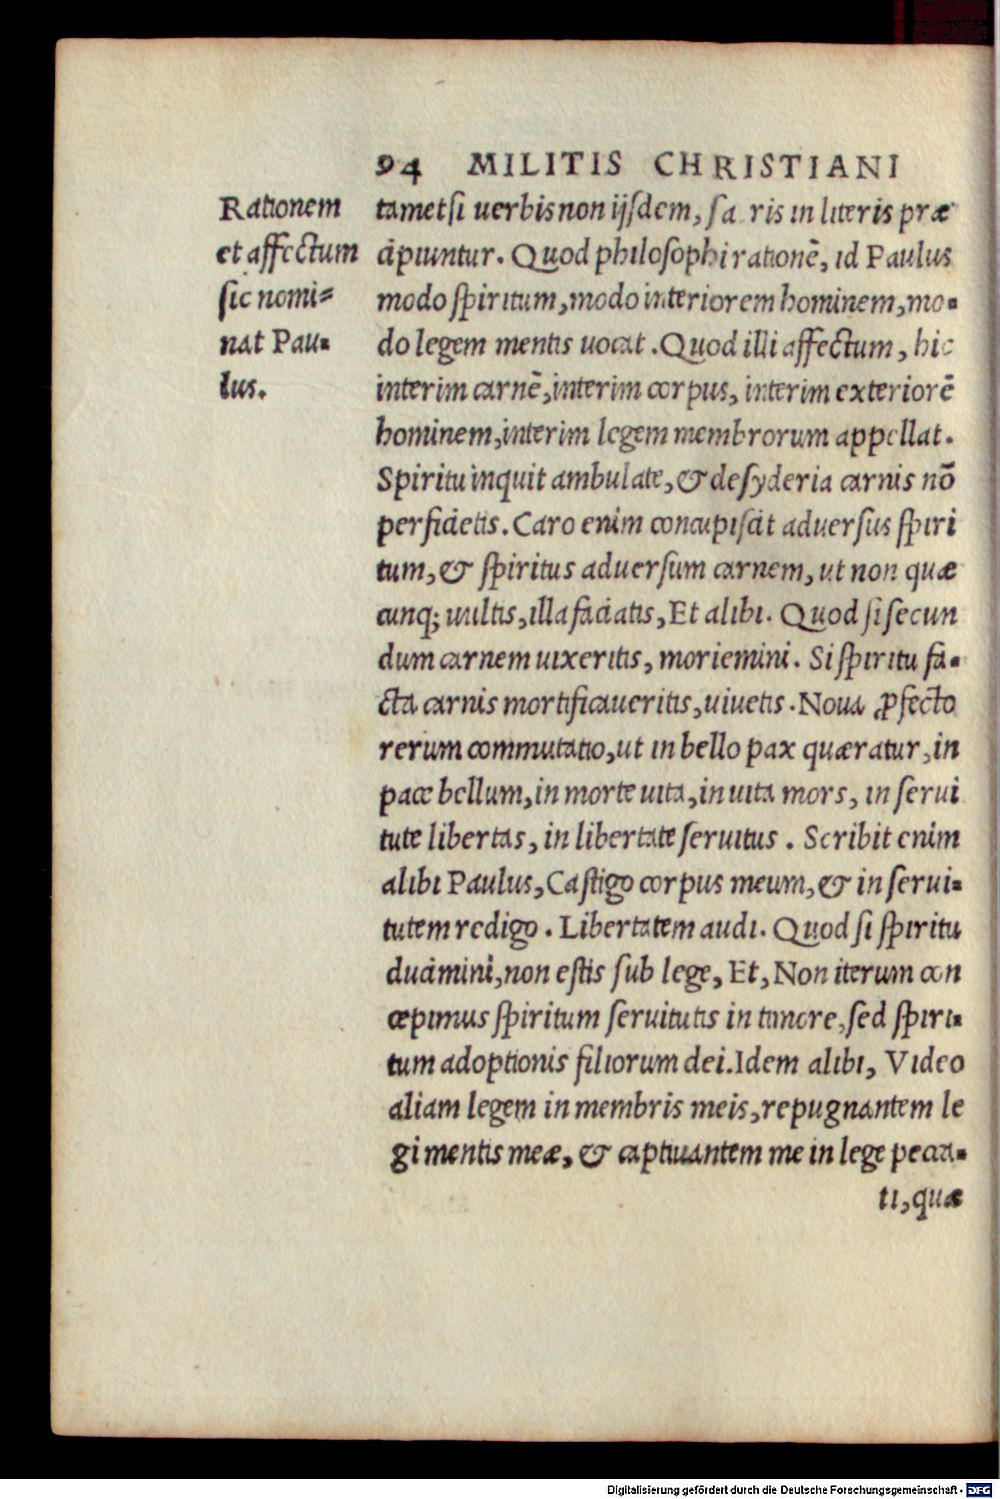 94 MILITIS CHRISTIANI
Rationem
et affectum
sic nomi=
nat Pau-
lus.
tametsi uerbis non ijsdem, sa ris in literis præ
cipiuntur. Quod philosophi rationē, id Paulus
modo spiritum, modo interiorem hominem, mo-
do legem mentis uocat. Quod illi affectum, hic
interim carnē, interim corpus, interim exteriorē
hominem, interim legem membrorum appellat.
Spiritu inquit ambulate, & desyderia carnis nō
perficietis. Caro enim concupiscit aduersus spiri
tum, & spiritus aduersum carnem, ut non quæ
cunq; uultis, illa faciatis, Et alibi. Quod si secun
dum carnem uixeritis, moriemini. Si spiritu fa-
cta carnis mortificaueritis, uiuetis. Noua ꝓfecto
rerum commutatio, ut in bello pax quæratur, in
pace bellum, in morte uita, in uita mors, in serui
tute libertas, in libertate seruitus. Scribit enim
alibi Paulus, Castigo corpus meum, & in serui-
tutem redigo. Libertatem audi. Quod si spiritu
ducimini, non estis sub lege, Et, Non iterum acn
cepimus spiritum seruitutis in timore, sed spiri-
tum adoptionis filiorum dei. Idem alibi, Video
aliam legem in membris meis, repugnantem le
gi mentis meæ, & captiuantem me in lege pecca-
ti, quæ
Digitalisierung gefördert durch die Deutsche Forschungsgemeinschaft - DFG